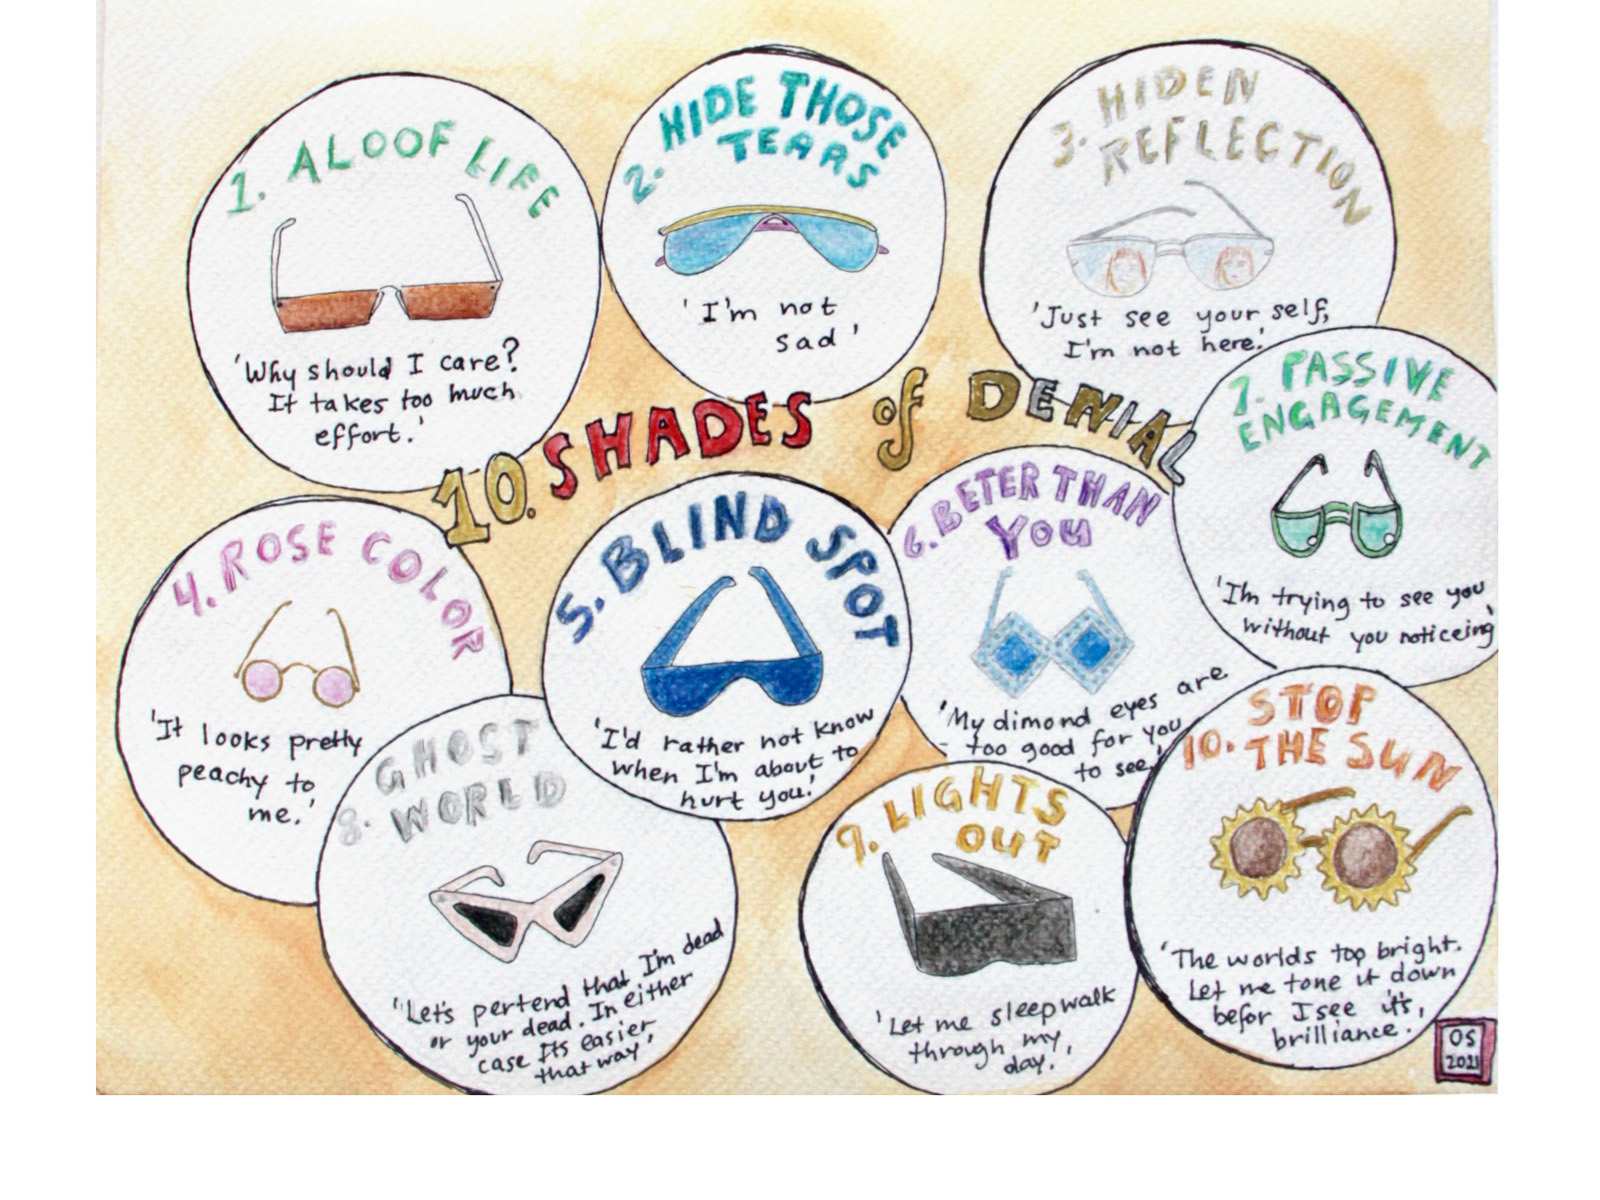 1. ALOOF LIFE
'Why should I care?
It takes too much
effort.'
2. HIDE THOSE
TEARS
'I'm not
sad'
3. HIDEN
REFLECTION
'Just see your self,
I'm not here.'
10. SHADES of DENIAL
4. ROSE COLOR
'It looks pretty
peachy to
me.'
5. BLIND SPOT
'I'd rather not know
when I'm about to
hurt you.'
6. BETER THAN
YOU
'My dimond eyes are
too good for you
to see.'
7. PASSIVE
ENGAGEMENT
'I'm trying to see you
without you noticeing'
8. GHOST
WORLD
'Let's pertend that I'm dead
or your dead. In either
case Its easier
that way'
9. LIGHTS
OUT
'Let me sleepwalk
through my
day.'
10. STOP
THE SUN
'The worlds too bright.
Let me tone it down
befor I see it's,
brilliance.
OS
2021